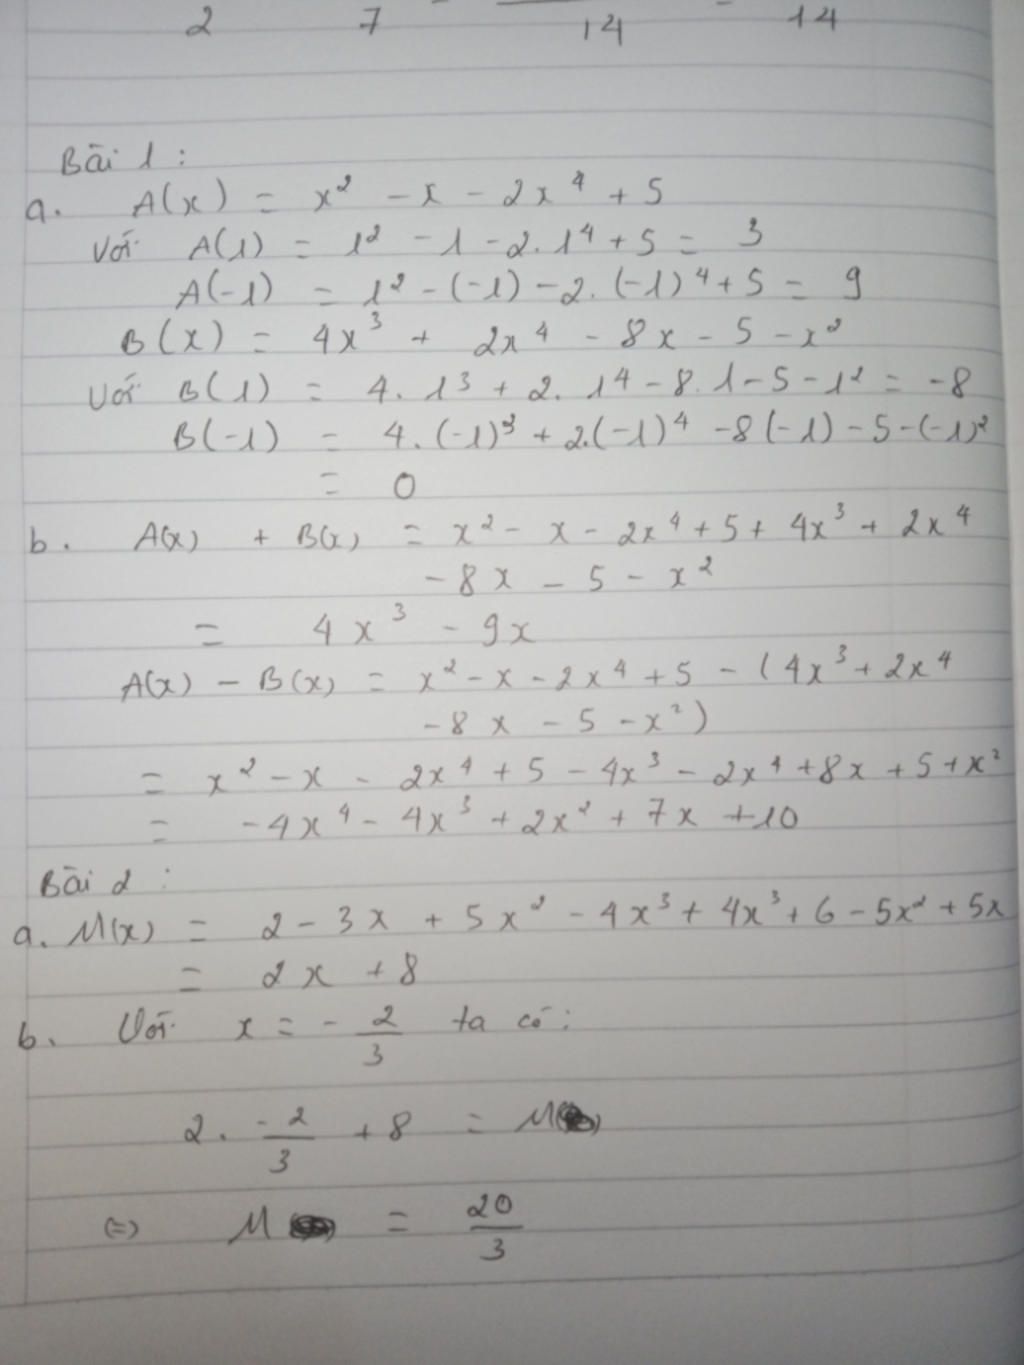 2 7 14 14
Bài 1 :
a. A(x) = x² - x - 2x⁴ + 5
Với A(1) = 1² - 1 - 2. 1⁴ + 5 = 3
A(-1) = 1² - (-1) - 2. (-1)⁴ + 5 = 9
B(x) = 4x³ + 2x⁴ - 8x - 5 - x²
Với B(1) = 4. 1³ + 2. 1⁴ - 8. 1 - 5 - 1² = -8
B(-1) = 4. (-1)³ + 2.(-1)⁴ - 8(-1) - 5 - (-1)²
= 0
b. A(x) + B(x) = x² - x - 2x⁴ + 5 + 4x³ + 2x⁴
- 8x - 5 - x²
= 4x³ - 9x
A(x) - B(x) = x² - x - 2x⁴ + 5 - (4x³ + 2x⁴
- 8x - 5 - x²)
= x² - x - 2x⁴ + 5 - 4x³ - 2x⁴ + 8x + 5 + x²
= -4x⁴ - 4x³ + 2x² + 7x + 10
Bài 2 :
a. M(x) = 2 - 3x + 5x² - 4x³ + 4x³ + 6 - 5x² + 5x
= 2x + 8
b. Với x = - 2/3 ta có :
2. -2/3 + 8 = M
(=) M = 20/3